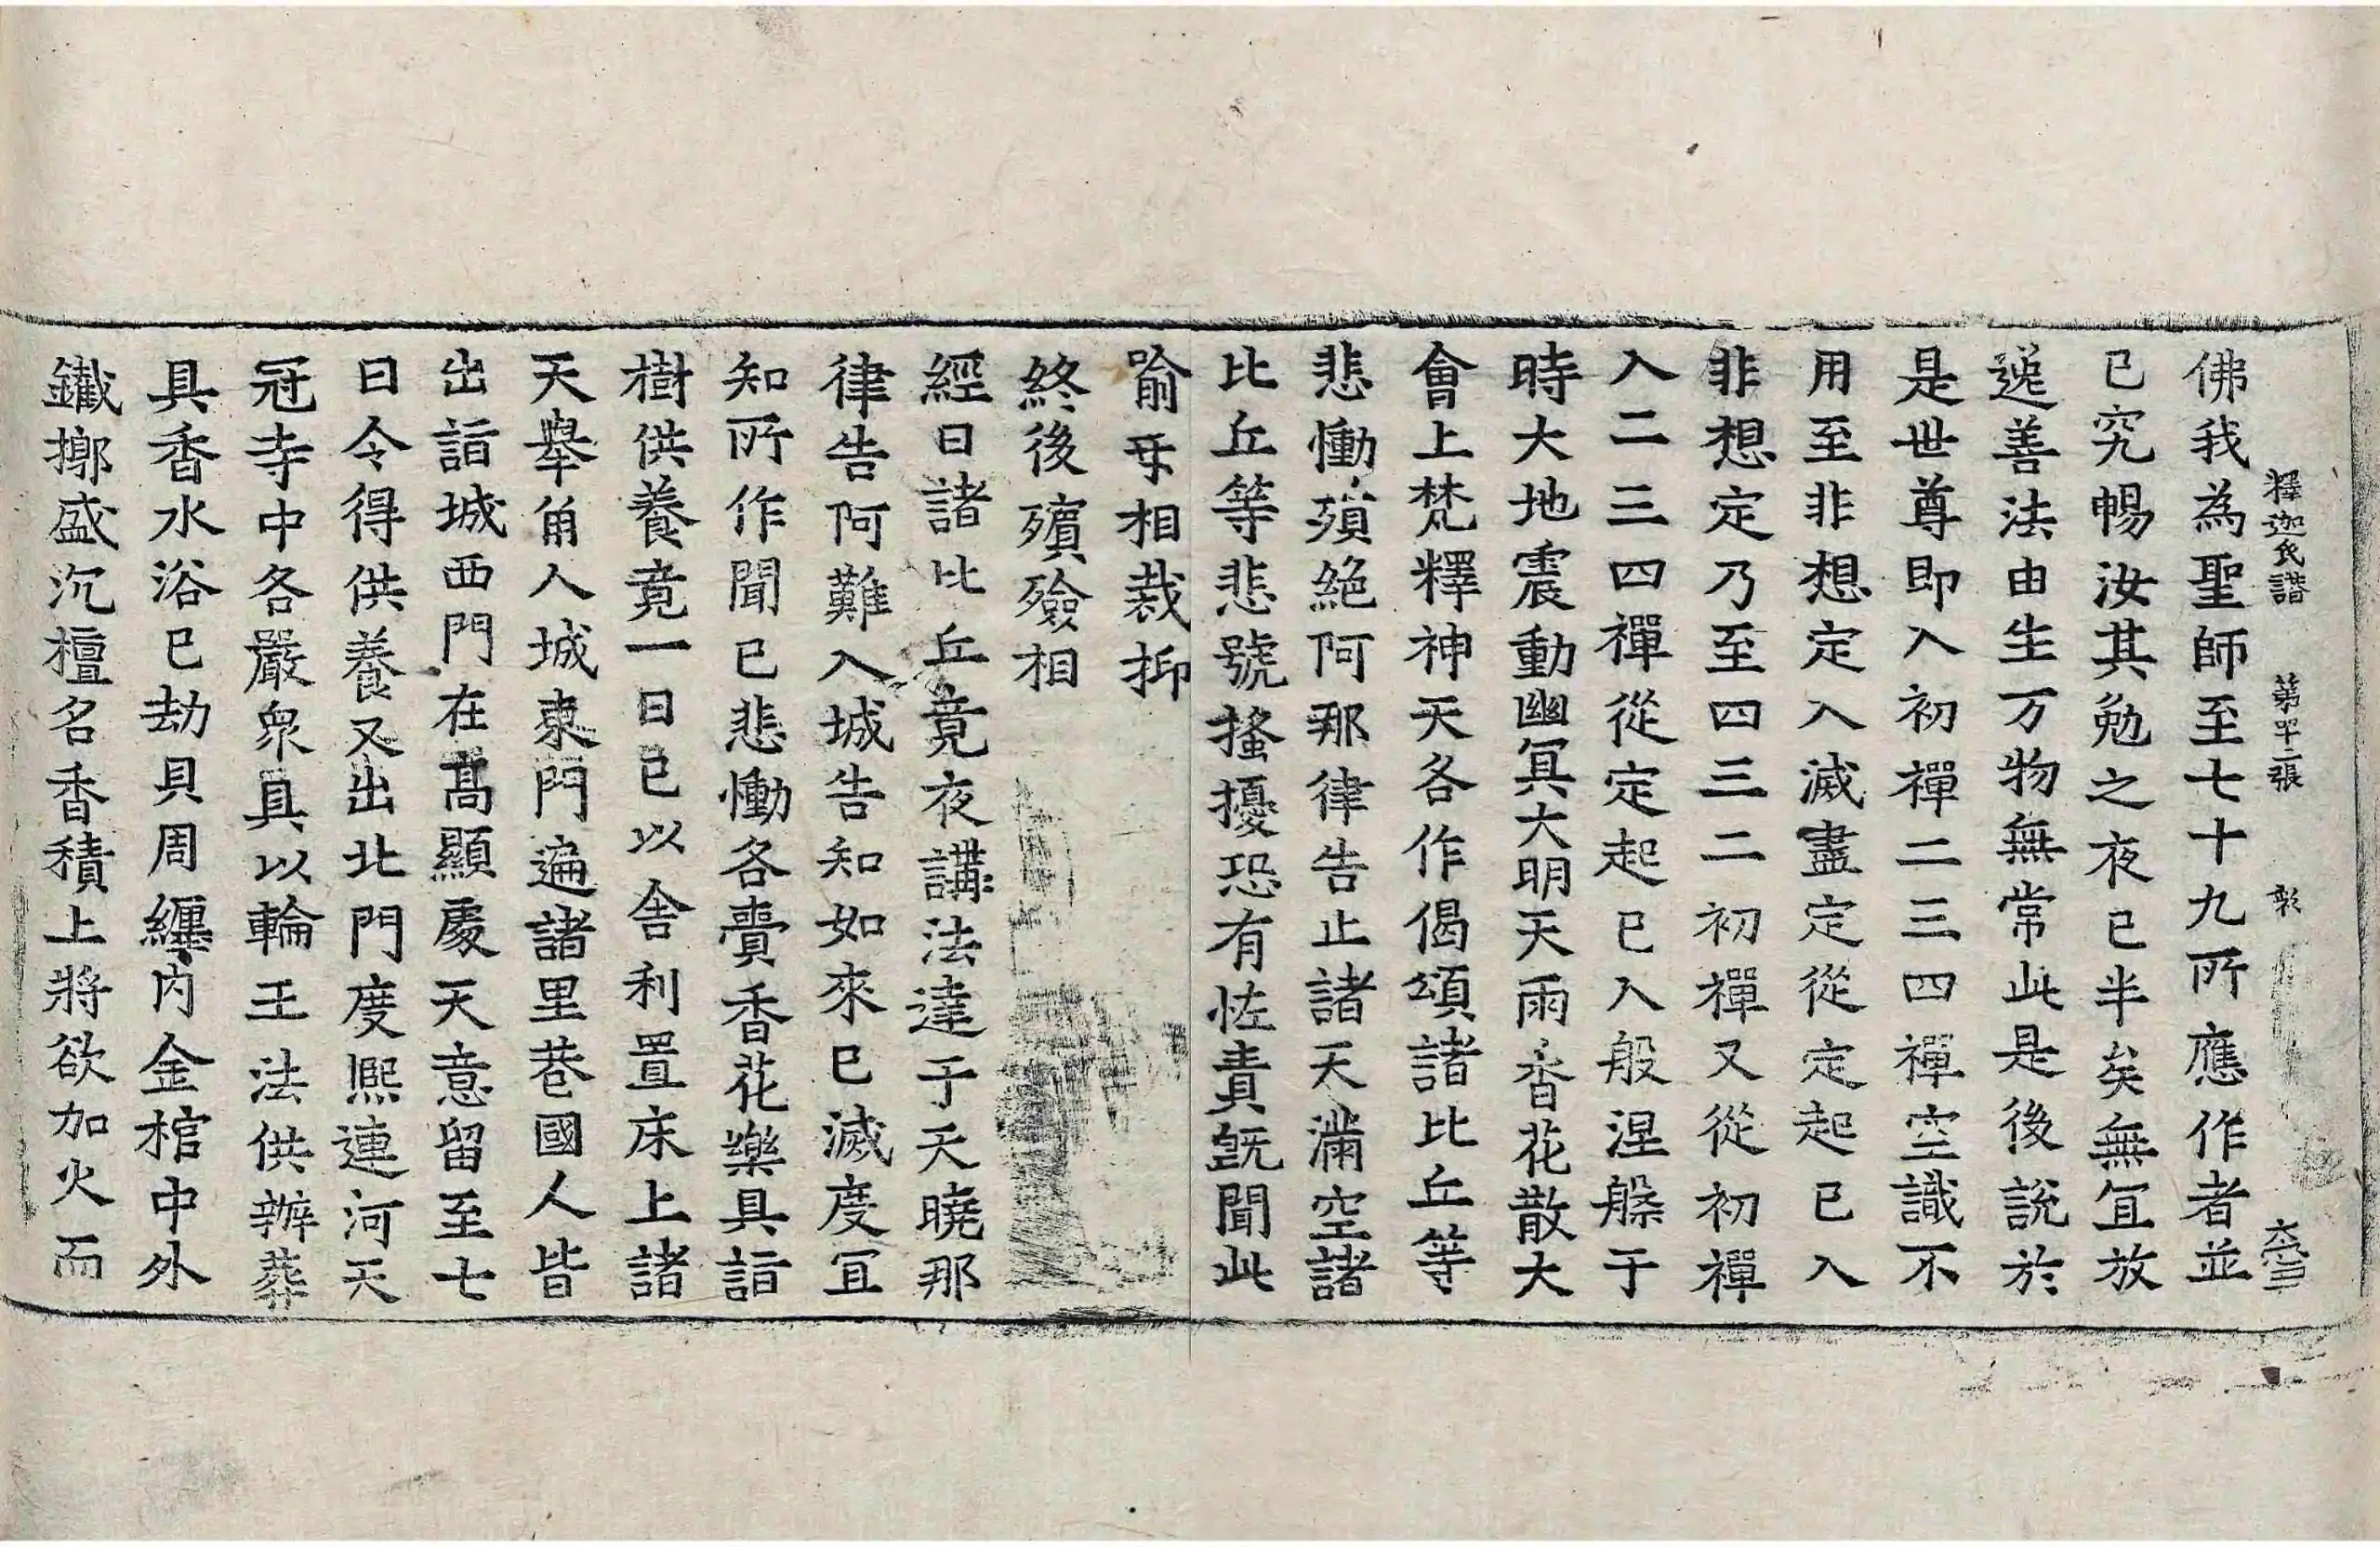 釋迦氏譜 第四十二張 彰
佛我為聖師至七十九所應作者並
已究暢汝其勉之夜已半矣無冝放
逸善法由生万物無常此是後說於
是世尊即入初禪二三四禪空識不
用至非想定入滅盡定從定起已入
非想定乃至四三二初禪又從初禪
入二三四禪從定起已入般涅槃于
時大地震動幽冥大明天雨香花散大
會上梵釋神天各作偈頌諸比丘等
悲慟殞絕阿那律告止諸天滿空諸
比丘等悲號搔擾恐有恠責旣聞此
喻㸦相裁抑
終後殯殮相
經曰諸比丘竟夜講法達于天曉那
律告阿難入城告知如來已滅度冝
知所作聞已悲慟各賷香花樂具詣
樹供養竟一日已以舍利置床上諸
天舉角人城東門遍諸里巷國人皆
出詣城西門在髙顯處天意留至七
日令得供養又出北門度熙連河天
冠寺中各嚴衆具以輪王法供辦葬
具香水浴已劫貝周纏內金棺中外
鐵槨盛沉檀名香積上將欲加火而